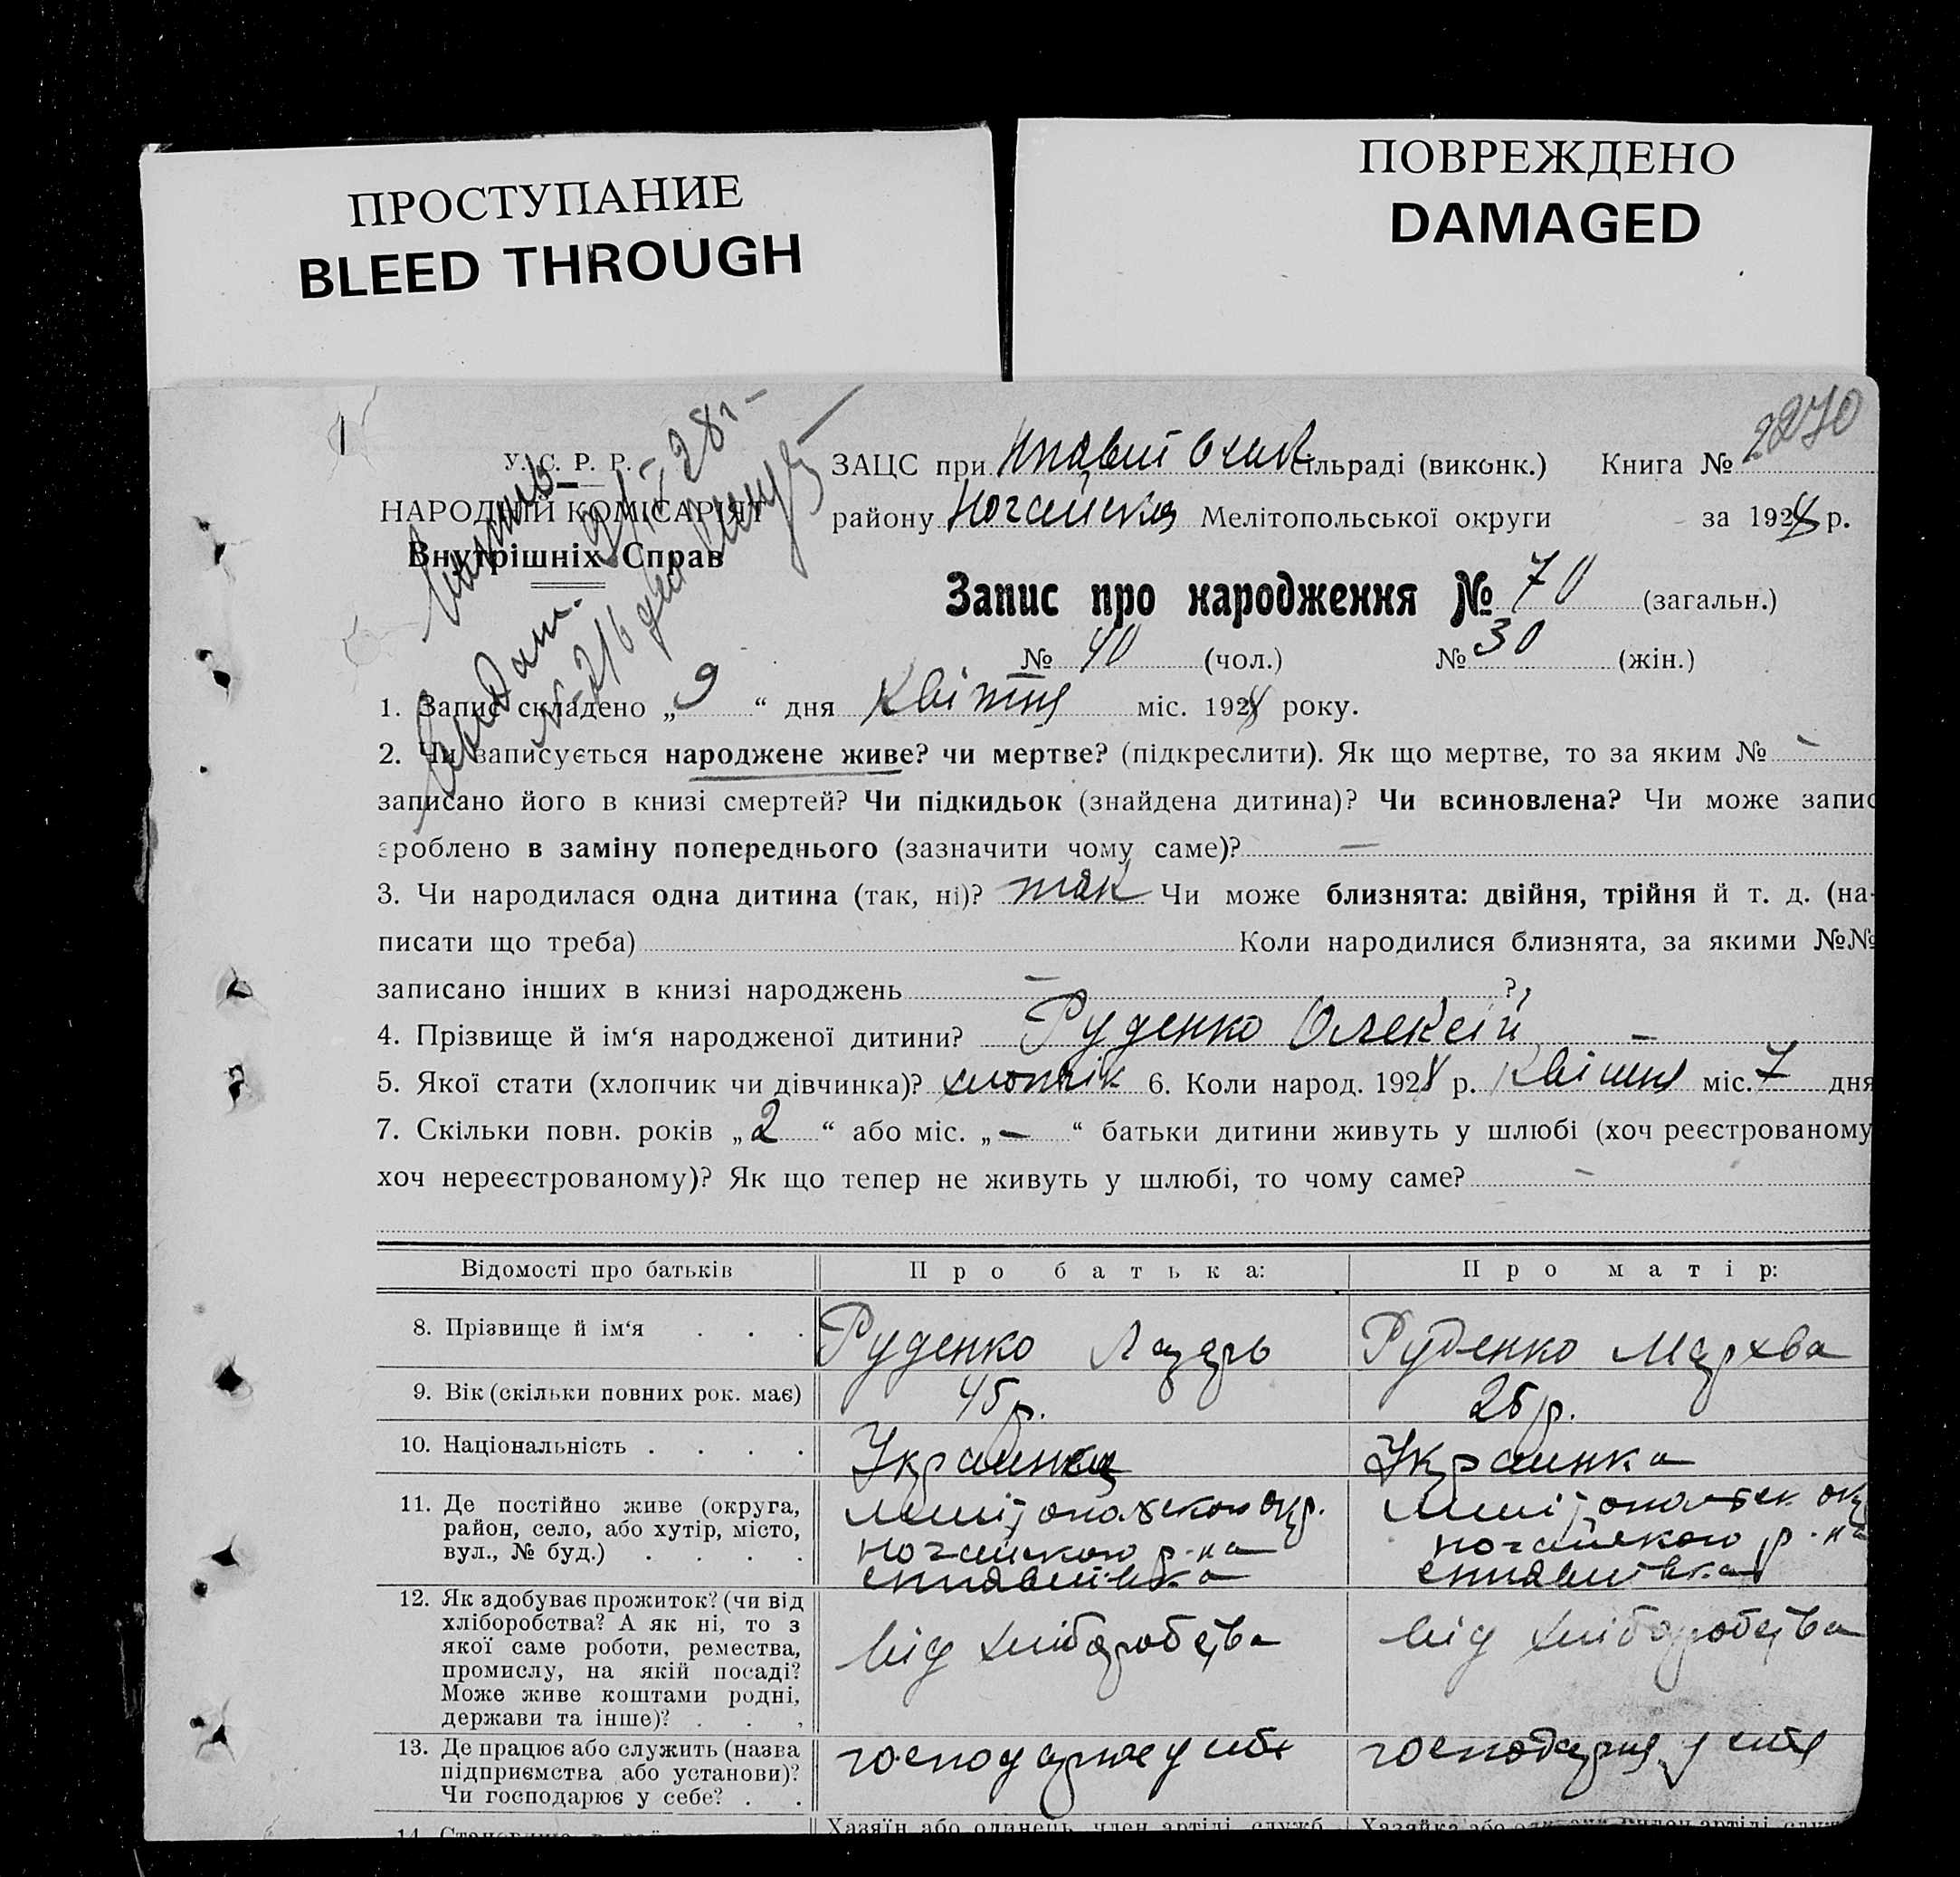 ПРОСТУПАНИЕ
BLEED THROUGH
ПОВРЕЖДЕНО
DAMAGED
2270
У. С. Р. Р.
НАРОДНІЙ КОМІСАРІЯТ
Внутрішніх Справ
ЗАЦС при сільраді (виконк.) Книга №
району Ногайська Мелітопольської округи за 1928 р.
Запис про народження № 70 (загальн.)
№ 40 (чол.) № 30 (жін.)
1. Запис складено „ 9 “ дня Квітня міс. 1928 року.
2. Чи записується народжене живе? чи мертве? (підкреслити). Як що мертве, то за яким № -
записано його в книзі смертей? Чи підкидьок (знайдена дитина)? Чи всиновлена? Чи може запис
зроблено в заміну попереднього (зазначити чому саме)? —
3. Чи народилася одна дитина (так, ні)? так Чи може близнята: двійня, трійня й т. д. (на-
писати що треба) Коли народилися близнята, за якими №№
записано інших в книзі народжень — ?
4. Прізвище й ім‘я народженої дитини? Руденко Олексій
5. Якої стати (хлопчик чи дівчинка)? хлопчік 6. Коли народ. 1928 р. Квітня міс. 7 дня
7. Скільки повн. років „ 2 “ або міс. „ — “ батьки дитини живуть у шлюбі (хоч реєстрованому
хоч нереєстрованому)? Як що тепер не живуть у шлюбі, то чому саме? -
Відомості про батьків Про батька: Про матір:
8. Прізвище й ім‘я . . . Руденко Лазарь Руденко Мархва
9. Вік (скільки повних рок. має) 45 р. 25 р.
10. Національність . . . . Україинка
11. Де постійно живе (округа,
район, село, або хутір, місто,
вул., № буд.) . . . .
Мелітопольскою окр.
ногайською р-на
Мелітопольск окр
ногайською р-на
12. Як здобуває прожиток? (чи від
хліборобства? А як ні, то з
якої саме роботи, ремества,
промислу, на якій посаді?
Може живе коштами родні,
держави та інше)? . . .
від хліборобства від хліборобства
13. Де працює або служить (назва
підприємства або установи)?
Чи господарює у себе? . .
господарює у себе господарня у себе
Хазяїн або одинець, член артілі, служб.